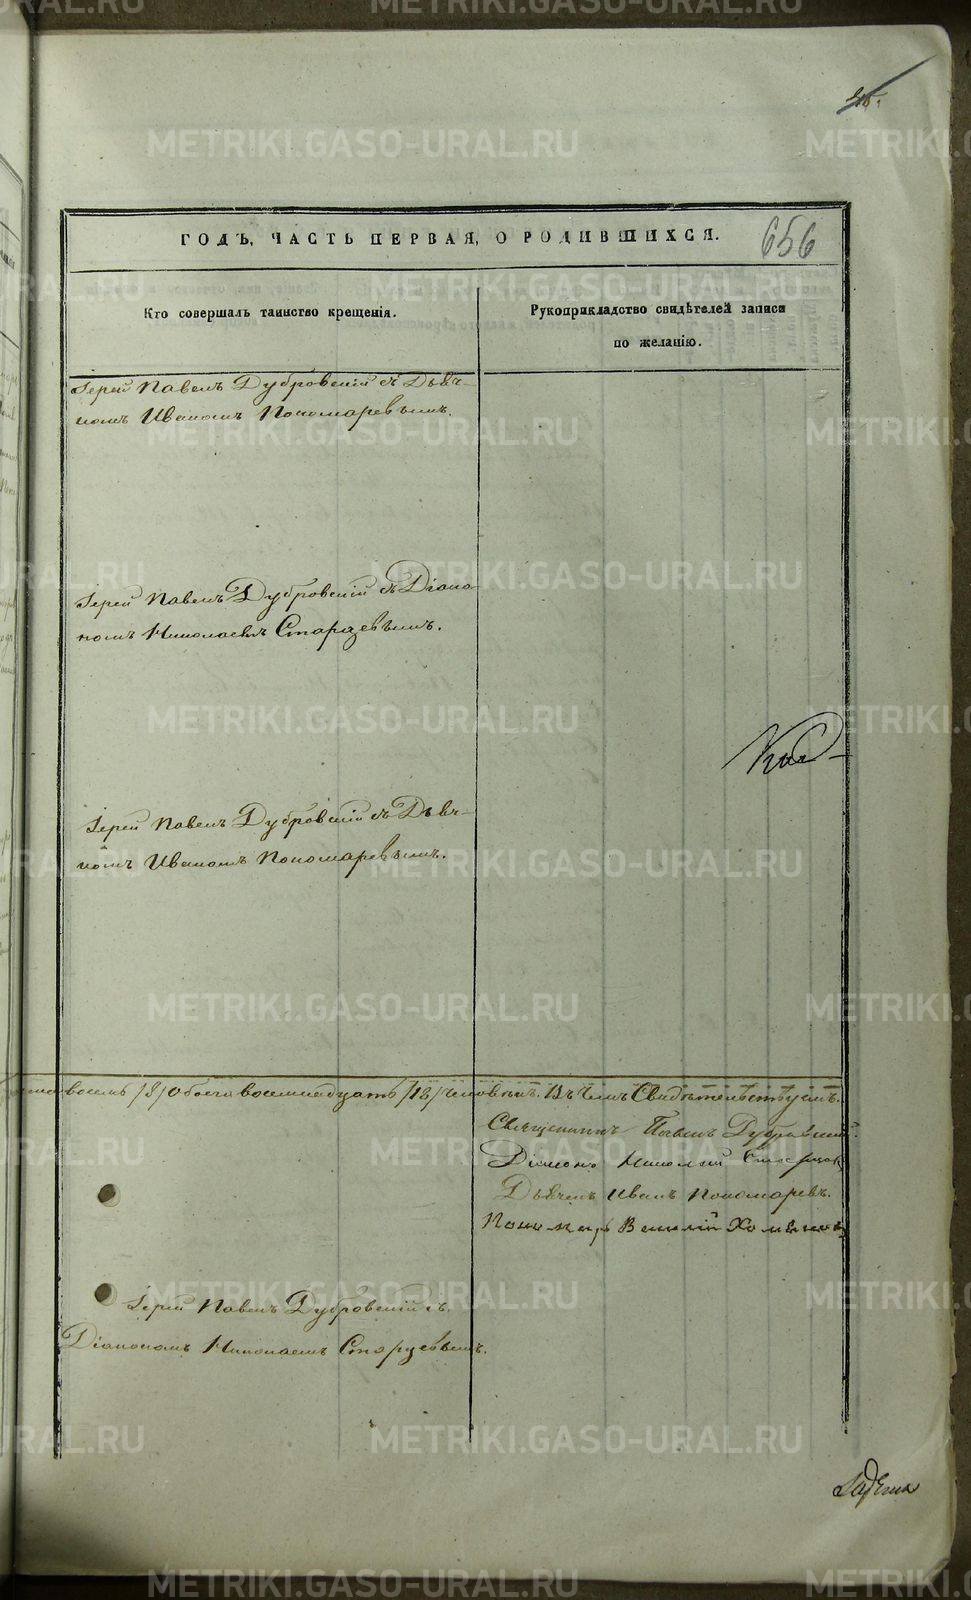 ГОДЪ, ЧАСТЬ ПЕРВАЯ, О РОДИВШИХСЯ.
656
Кто совершалъ таинство крещенія.
Рукоприкладство свидѣтелей записи
по желанію.
Іерей Павелъ Дубровскій съ Дьяч-
комъ Иваномъ Пономаревымъ.
Іерей Павелъ Дубровскій съ Діако-
номъ Николаемъ Старцевымъ.
Іерей Павелъ Дубровскій съ Дьяч-
комъ Иваномъ Пономаревымъ.
восемь /8/ Обоего восемнадцать /18/ человѣкъ. Въ чемъ Свидѣтельствуемъ.
Священникъ Павелъ Дубровскій.
Діаконъ Николай Старцовъ
Дьячекъ Иванъ Пономаревъ.
Пономарь Василій
Іерей Павелъ Дубровскій съ
Діакономъ Николаемъ Старцевымъ.
METRIKI.GASO-URAL.RU